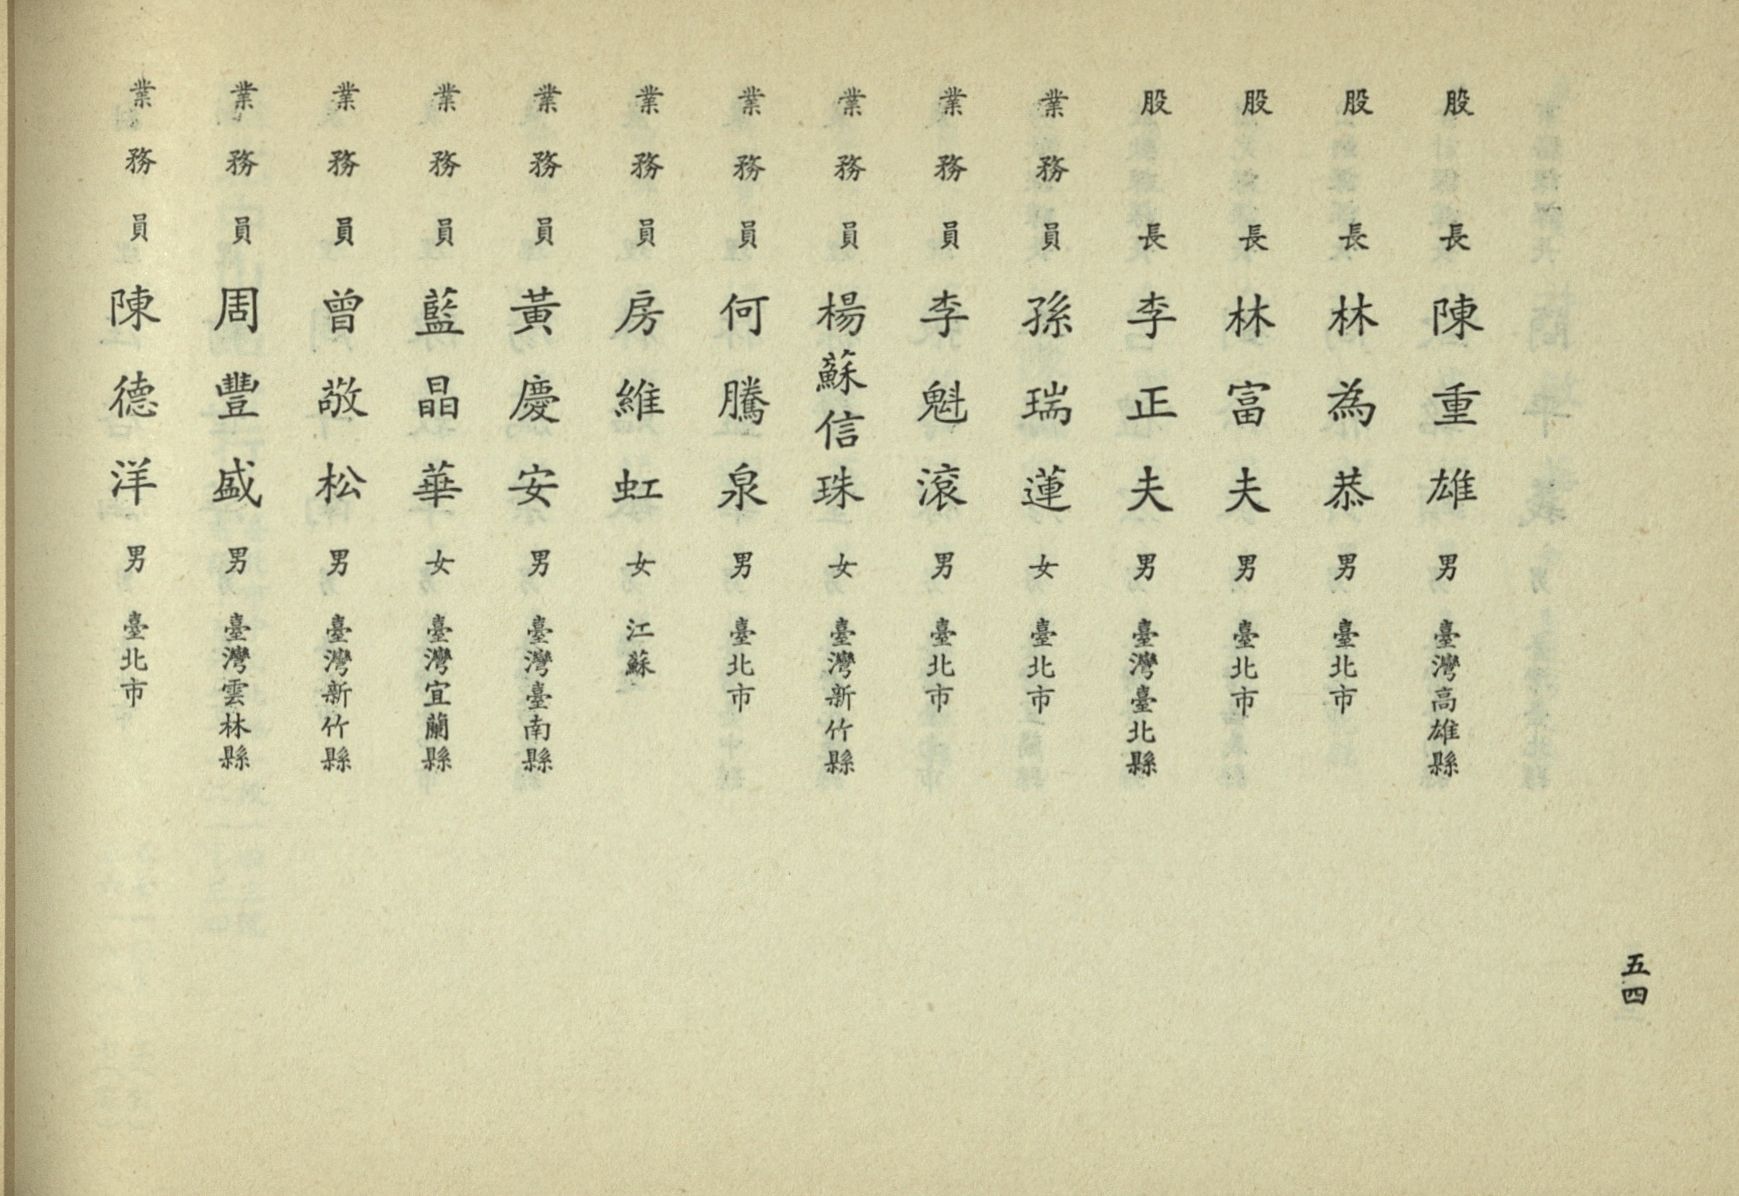 股長 陳重雄 男 臺灣高雄縣
股長 林為恭 男 臺北市
股長 林富夫 男 臺北市
股長 李正夫 男 臺灣臺北縣
業務員 孫瑞蓮 女 臺北市
業務員 李魁滾 男 臺北市
業務員 楊蘇信珠 女 臺灣新竹縣
業務員 何騰泉 男 臺北市
業務員 房維虹 女 江蘇
業務員 黃慶安 男 臺灣臺南縣
業務員 藍晶華 女 臺灣宜蘭縣
業務員 曾敬松 男 臺灣新竹縣
業務員 周豐盛 男 臺灣雲林縣
業務員 陳德洋 男 臺北市
五四